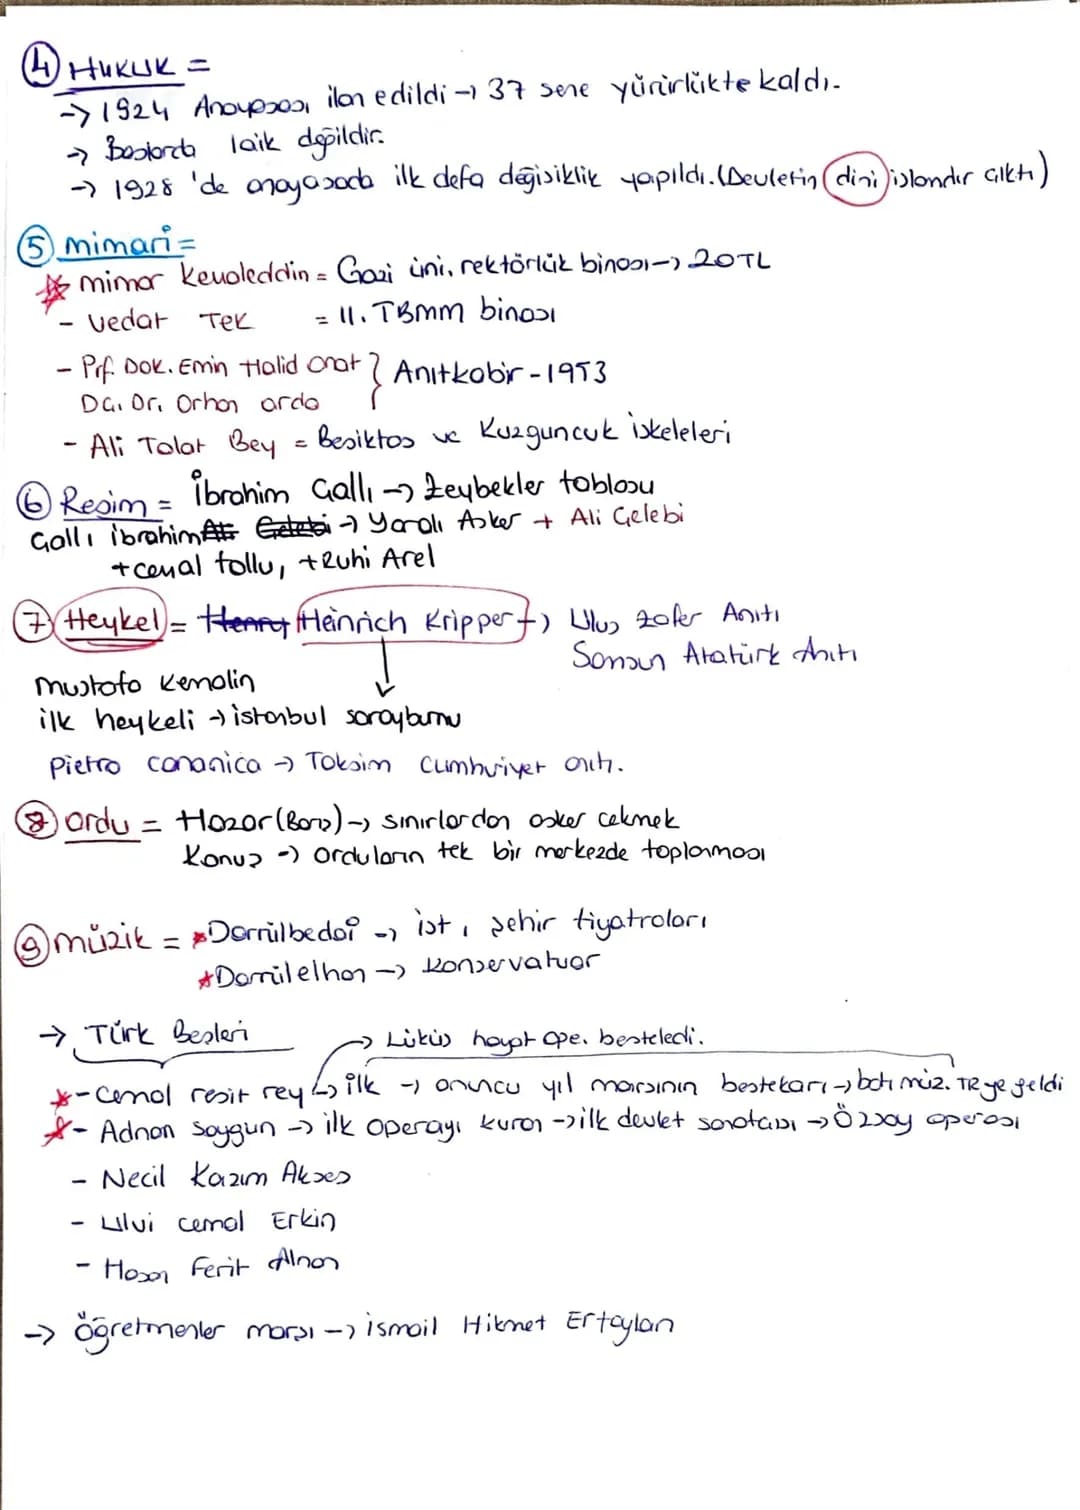 ④ Hukuk =
→ 1924 Anayasası ilan edildi → 37 sene yürürlükte kaldı.
→ Başlarda laik değildir.
→ 1928 'de anayasada ilk defa değişiklik yapıldı. (Devletin dini islamdır çıktı)
⑤ mimari =
mimar Kemaleddin = Gazi üni. rektörlük binası → 20TL
- Vedat Tek = II. TBMM binası
- Prf. Dok. Emin Halid Onat } Anıtkabir - 1953
Dç. Dr. Orhan arda
- Ali Talat Bey = Beşiktaş ve Kuzguncuk iskeleleri
⑥ Resim = İbrahim Çallı → Zeybekler tablosu
Çallı ibrahim Ali Çelebi → Yaralı Asker + Ali Çelebi
+ cemal tollu, + Ruhi Arel
⑦ Heykel = Henry Heinrich Kripper → Ulus zafer Anıtı
Samsun Atatürk Anıtı
Mustafa Kemalin
ilk heykeli → istanbul sarayburnu
Pietro canonica → Taksim cumhuriyet anıtı.
⑧ ordu = Hazar (Barış) → sınırlardan asker çekmek
Konuş → Orduların tek bir merkezde toplanması
⑨ müzik = Darrülbedai → ist, şehir tiyatroları
Darrülelhan → konservatuar
→ Türk Beşleri → Lüküs hayat ope. besteledi.
- Cemal reşit rey → ilk → onuncu yıl marşının bestekarı → batı müz. TR ye geldi
- Adnan Saygun → ilk operayı kuran → ilk devlet sanatçısı → Özsoy operası
- Necil Kazım Akses
- Ulvi cemal Erkin
- Hasan Ferit Alnar
→ öğretmenler marşı → ismail Hikmet Ertaylan